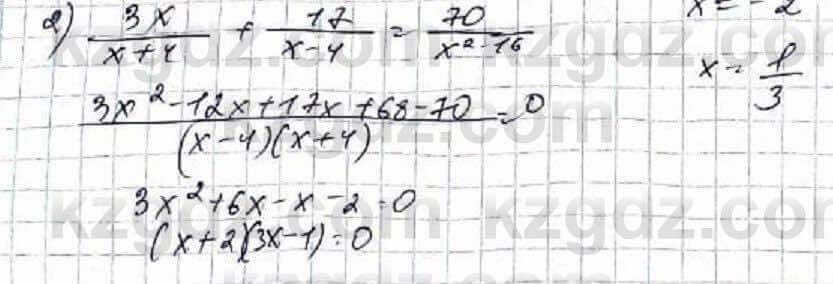 2) 3x/(x+4) + 17/(x-4) = 70/(x²-16)
(3x²-12x+17x+68-70)/((x-4)(x+4)) = 0
3x²+6x-x-2=0
(x+2)(3x-1)=0
x=-2
x=1/3
kzgdz.com
kzgdz.com
kzgdz.com
kzgdz.com